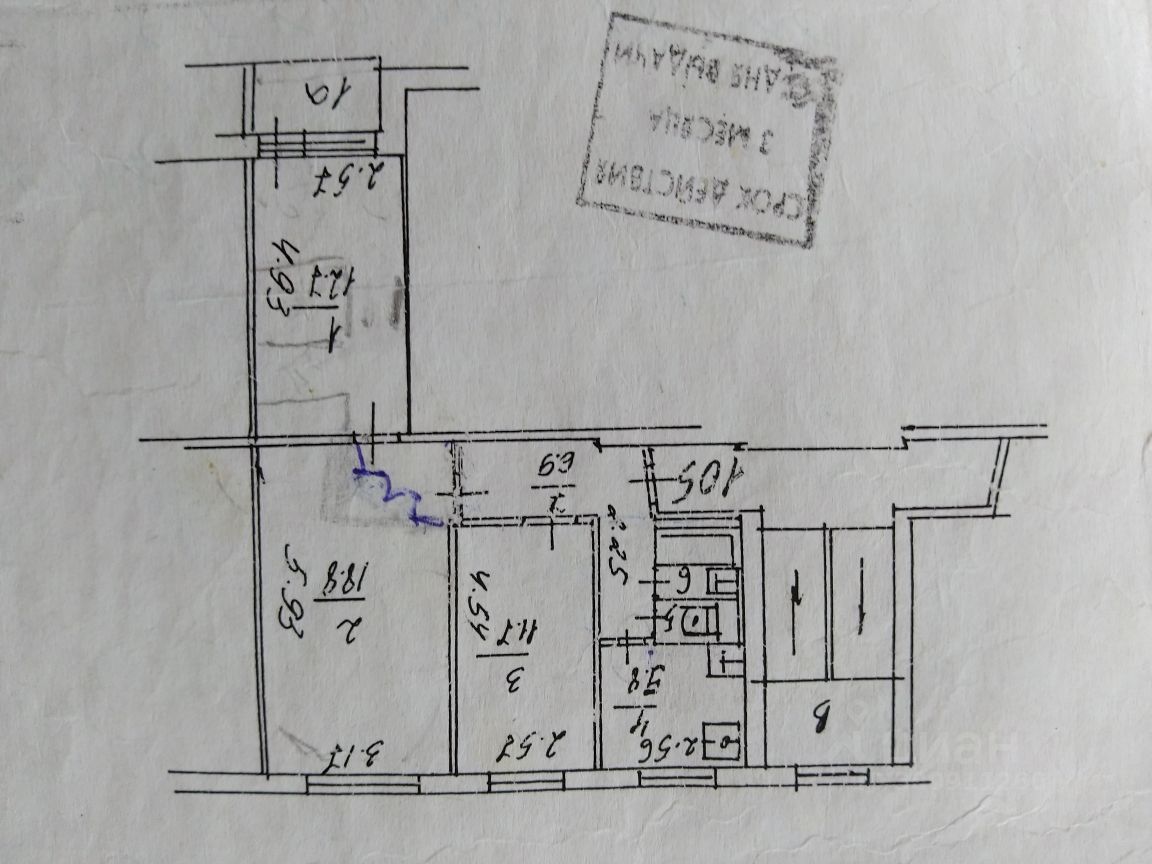 В
2.56
2.57
3.17
4
5.8
3
11.7
4.54
2
18.8
5.93
5
6
2.25
105
7
6.9
1
12.7
4.93
2.57
1а
СРОК ДЕЙСТВИЯ
3 МЕСЯЦА
СО ДНЯ ВЫДАЧИ